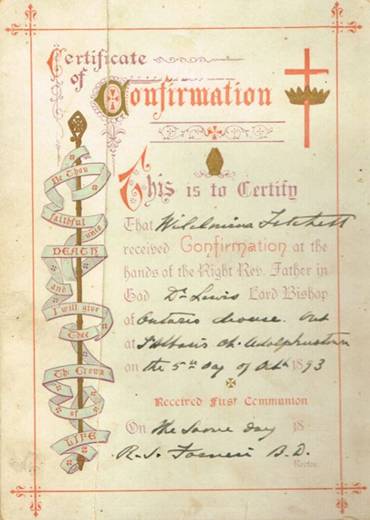 Certificate
of
Confirmation
This is to Certify
That Wilelmina Fitchett
received Confirmation at the
hands of the Right Rev. Father in
God Dr Lewis Lord Bishop
of Ontario
at Adolphustown
on the 5th day of Oct 1893
Received First Communion
On the Same day 18
R. S. Forneri B.D.
Rector.
Be Thou
faithful unto
DEATH
and
I will give
Thee
The Crown
of
LIFE